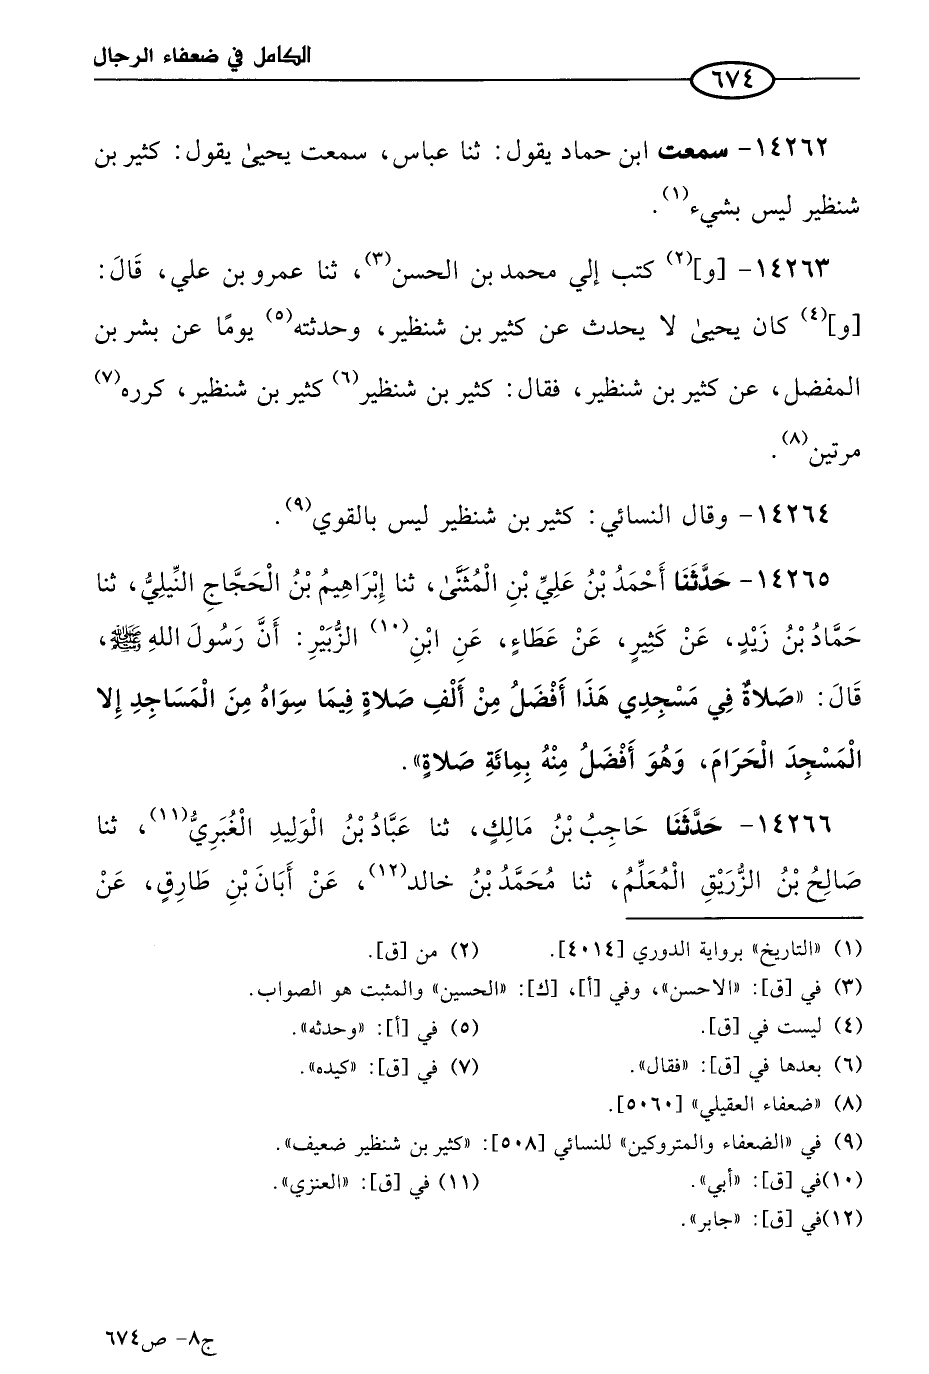 الكامل في ضعفاء الرجال
٦٧٤
١٤٢٦٢- سمعت ابن حماد يقول: ثنا عباس، سمعت يحيىٰ يقول: كثير بن
شنظير ليس بشيء(١).
١٤٢٦٣- [و](٢) كتب إلي محمد بن الحسن(٣)، ثنا عمرو بن علي، قَالَ:
[و](٤) كان يحيىٰ لا يحدث عن كثير بن شنظير، وحدثته(٥) يومًا عن بشر بن
المفضل، عن كثير بن شنظير، فقال: كثير بن شنظير(٦) كثير بن شنظير، كرره(٧)
مرتين(٨).
١٤٢٦٤- وقال النسائي: كثير بن شنظير ليس بالقوي(٩).
١٤٢٦٥- حَدَّثَنَا أَحْمَدُ بْنُ عَلِيِّ بْنِ الْمُثَنَّىٰ، ثنا إِبْرَاهِيمُ بْنُ الْحَجَّاجِ النِّيلِيُّ، ثنا
حَمَّادُ بْنُ زَيْدٍ، عَنْ كَثِيرٍ، عَنْ عَطَاءٍ، عَنِ ابْنِ(١٠) الزُّبَيْرِ: أَنَّ رَسُولَ اللهِ ﷺ،
قَالَ: «صَلاةٌ فِي مَسْجِدِي هَذَا أَفْضَلُ مِنْ أَلْفِ صَلاةٍ فِيمَا سِوَاهُ مِنَ الْمَسَاجِدِ إِلا
الْمَسْجِدَ الْحَرَامَ، وَهُوَ أَفْضَلُ مِنْهُ بِمِائَةِ صَلاةٍ».
١٤٢٦٦- حَدَّثَنَا حَاجِبُ بْنُ مَالِكٍ، ثنا عَبَّادُ بْنُ الْوَلِيدِ الْغُبَرِيُّ(١١)، ثنا
صَالِحُ بْنُ الزُّرَيْقِ الْمُعَلِّمُ، ثنا مُحَمَّدُ بْنُ خالد(١٢)، عَنْ أَبَانَ بْنِ طَارِقٍ، عَنْ
(١) «التاريخ» برواية الدوري [٤٠١٤]. (٢) من [ق].
(٣) في [ق]: «الاحسن»، وفي [أ]، [ك]: «الحسين» والمثبت هو الصواب.
(٤) ليست في [ق]. (٥) في [أ]: «وحدثه».
(٦) بعدها في [ق]: «فقال». (٧) في [ق]: «كيده».
(٨) «ضعفاء العقيلي» [٥٠٦٠].
(٩) في «الضعفاء والمتروكين» للنسائي [٥٠٨]: «كثير بن شنظير ضعيف».
(١٠)في [ق]: «أبي». (١١) في [ق]: «العنزي».
(١٢)في [ق]: «جابر».
ج٨- ص٦٧٤